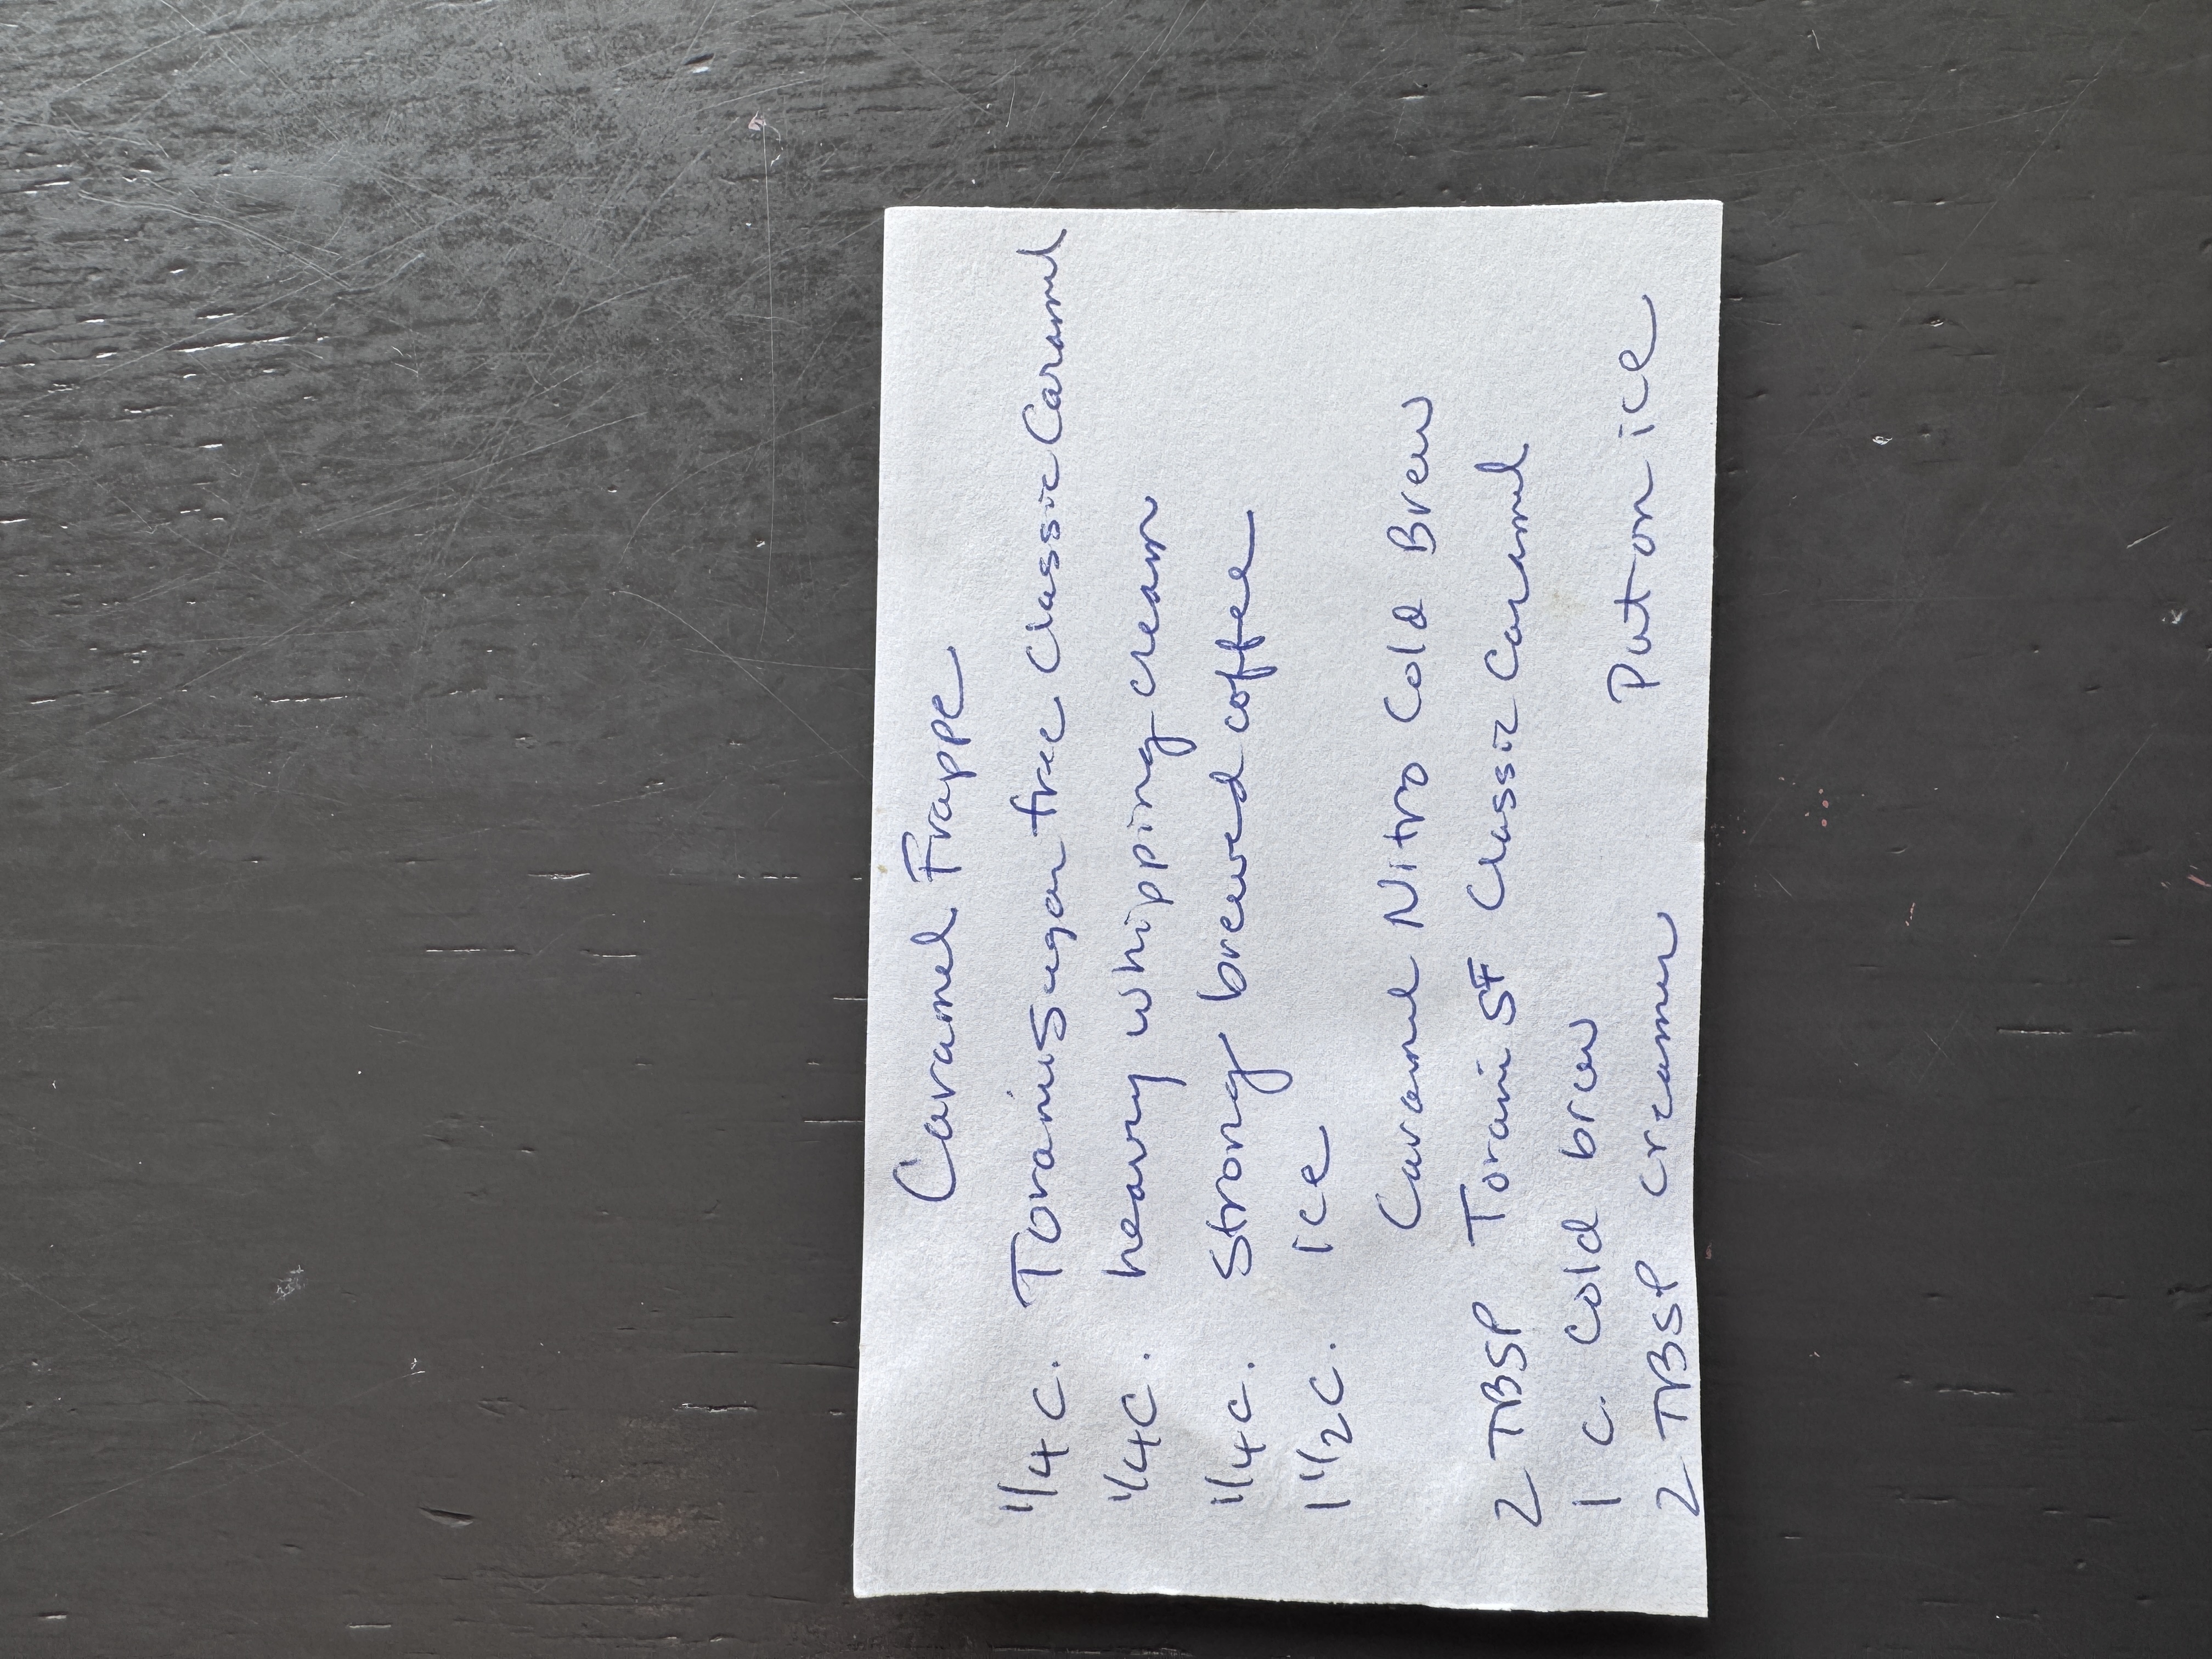 Caramel Frappe
1/4 C. Toranis sugar free Classic Caramel
1/4 C. heavy whipping cream
1/4 C. Strong brewed coffee
1 1/2 C. ice
Caramel Nitro Cold Brew
2 TBSP Torani SF Classic Caramel
1 C. Cold brew
2 TBSP creamer Put on ice